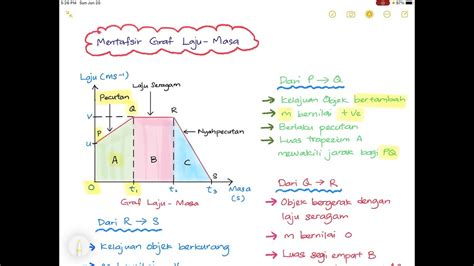 5:26 PM Sun Jun 20
87%
Mentafsir Graf Laju-Masa
Laju (ms⁻¹)
Pecutan
Laju Seragam
Nyahpecutan
v
u
P
Q
R
S
A
B
C
0
t₁
t₂
t₃
Masa
(s)
Graf Laju-Masa
Dari P → Q
→ Kelajuan Objek bertambah
→ m bernilai +ve
→ Berlaku pecutan
→ Luas trapezium A
mewakili jarak bagi PQ
Dari Q → R
→ Objek bergerak dengan
laju seragam
→ m bernilai 0
→ Luas segi empat B
Dari R → S
→ Kelajuan objek berkurang
→ m bernilai -ve